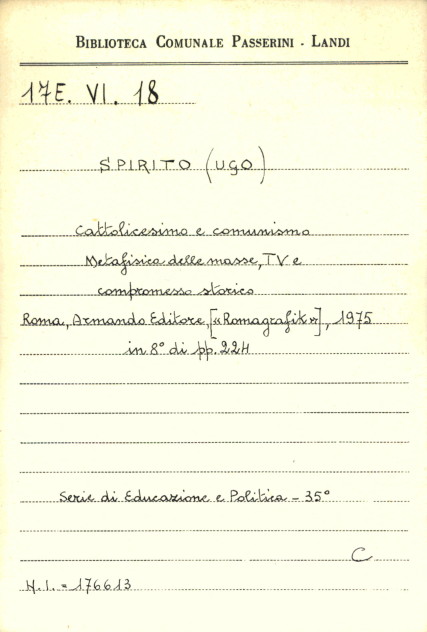 BIBLIOTECA COMUNALE PASSERINI - LANDI
17E. VI. 18
SPIRITO (UGO)
Cattolicesimo e comunismo
Metafisica delle masse, TV e
compromesso storico
Roma, Armando Editore, [«Romagrafik»], 1975
in 8° di pp. 224
Serie di Educazione e Politica - 35°
C
N.I. = 176613